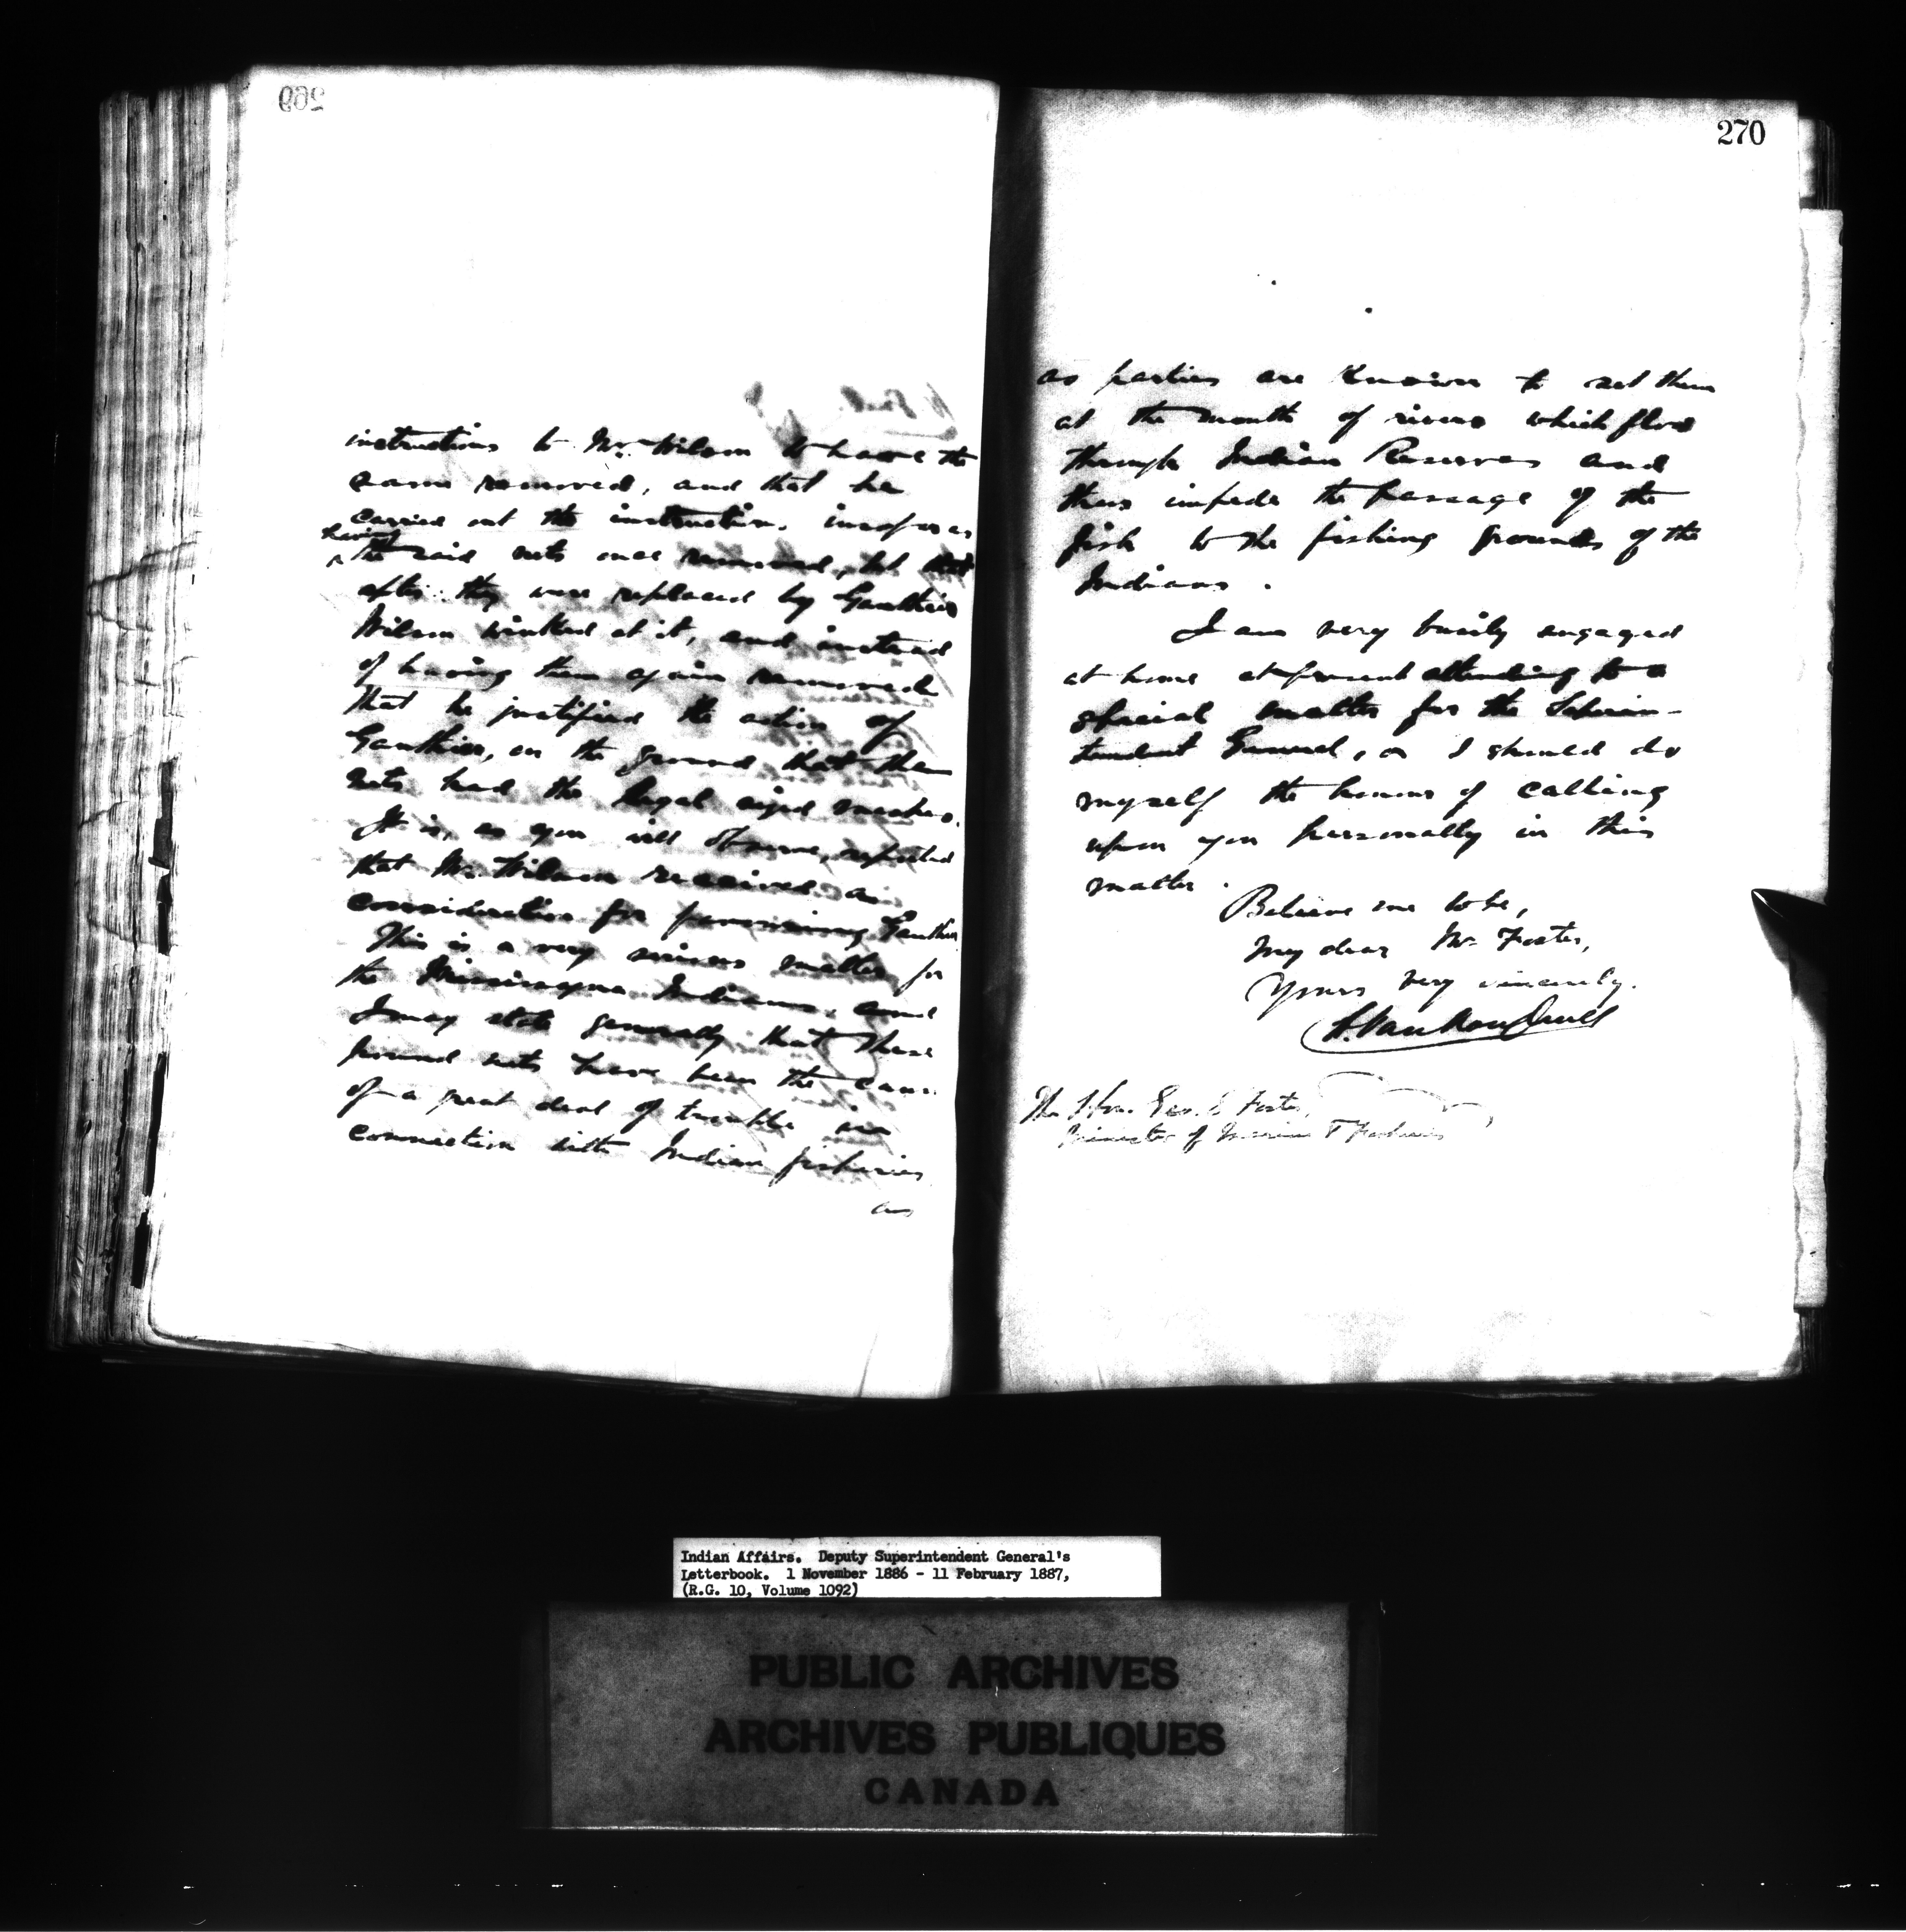 269
instructions to Mr. Wilson to have the
same removed, and that he
carried out the instruction, insofar as
having
the said nets once removed, but that
after they were replaced by Gauthier
Wilson winked at it, and instead
of having them again removed
that he justified the action of
Gauthier, on the ground that then
nets had the legal sized meshes.
It is, as you will observe, reported
that Mr. Wilson received a
consideration for permitting Gauthier
This is a very serious matter for
the Mississagua Indians, and
I may state generally that these
pound nets have been the cause
of a great deal of trouble in
connection with Indian fisheries
as
270
as parties are known to set them
at the mouth of rivers which flow
through Indian Reserves and
thus impede the passage of the
fish to the fishing grounds of the
Indians.
I am very busily engaged
at home at present attending to a
special matter for the Superin-
tendent General, or I should do
myself the honour of calling
upon you personally in this
matter.
Believe me to be,
My dear Mr. Foster,
Yours very sincerely.
L. Vankoughnet
The Hon. Geo. E. Foster,
Minister of Marine & Fisheries
Indian Affairs. Deputy Superintendent General's
Letterbook. 1 November 1886 - 11 February 1887,
(R.G. 10, Volume 1092)
PUBLIC ARCHIVES
ARCHIVES PUBLIQUES
CANADA